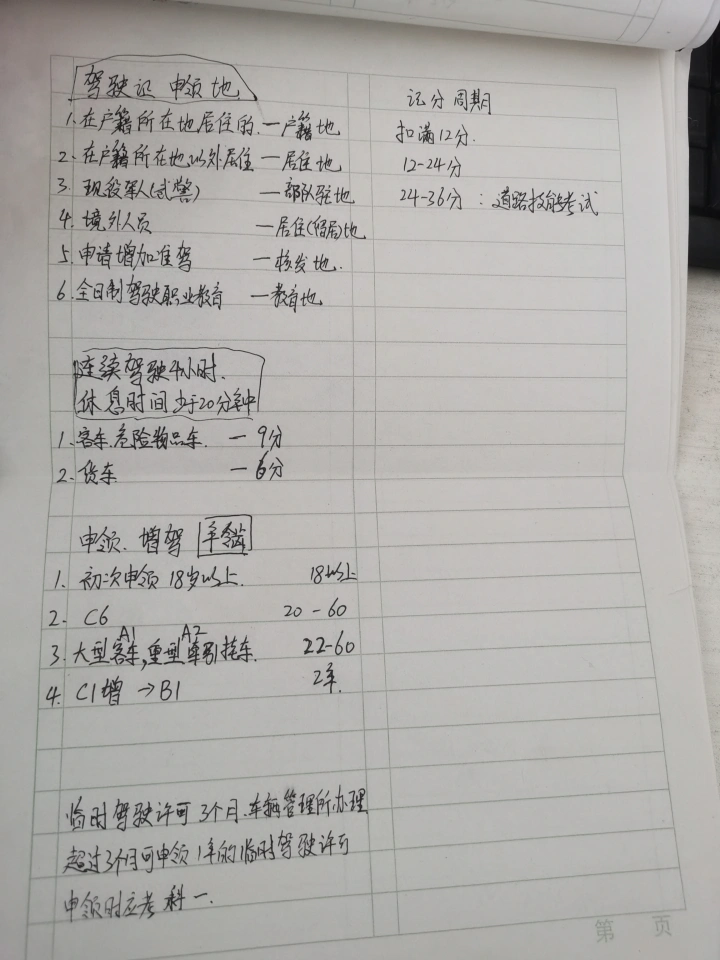 驾驶证 申领地
1.在户籍所在地居住的.一户籍地
2.在户籍所在地以外居住一居住地
3.现役军人(武警) 一部队驻地
4.境外人员 一居住(留居)地
5.申请增加准驾 一核发地.
6.全日制驾驶职业教育 一教育地
连续驾驶4小时.
休息时间少于20分钟
1.客车.危险物品车. 一 9分
2.货车 一 6分
申领. 增驾 年龄
1. 初次申领 18岁以上. 18以上
2. C6 20-60
A1 A2
3.大型客车,重型牵引挂车. 22-60
4. C1增 →B1 2年.
临时驾驶许可 3个月.车辆管理所办理
超过3个月可申领 1年的临时驾驶许可
申领时应考 科一.
记分周期
扣满12分.
12-24分
24-36分 : 道路技能考试
第 页